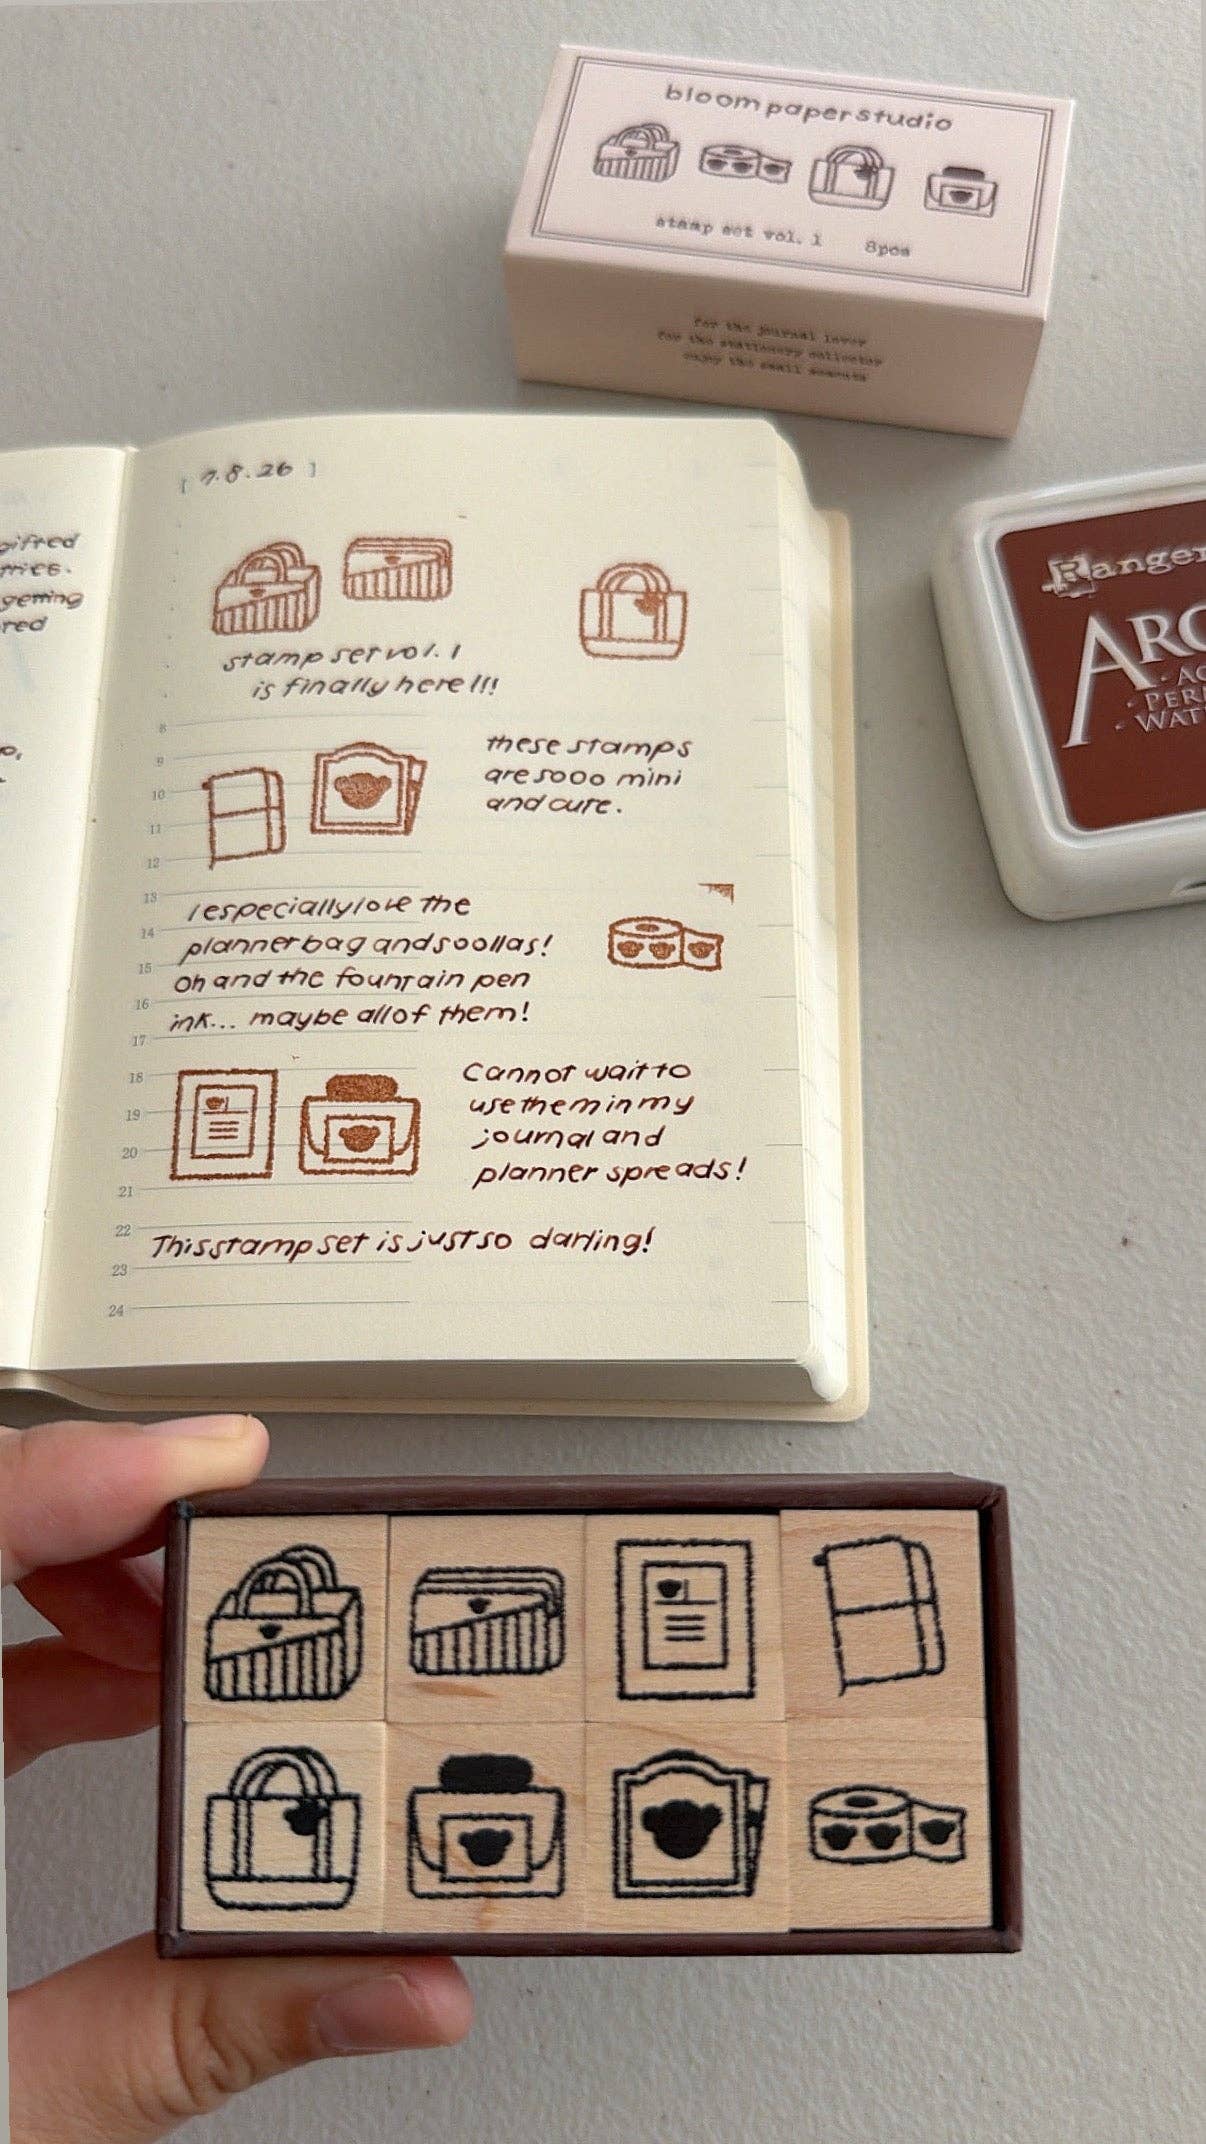 bloompaperstudio
stamp set vol. 1 8pcs
for the journal lover
for the stationery collector
enjoy the small moments
[ 1.8.26 ]
gifted
getting
red
stamp set vol. 1
is finally here!!!
these stamps
are sooo mini
and cute.
I especially love the
planner bag and soollas!
Oh and the fountain pen
ink... maybe all of them!
Cannot wait to
use them in my
journal and
planner spreads!
This stamp set is just so darling!
8
9
10
11
12
13
14
15
16
17
18
19
20
21
22
23
24
Ranger